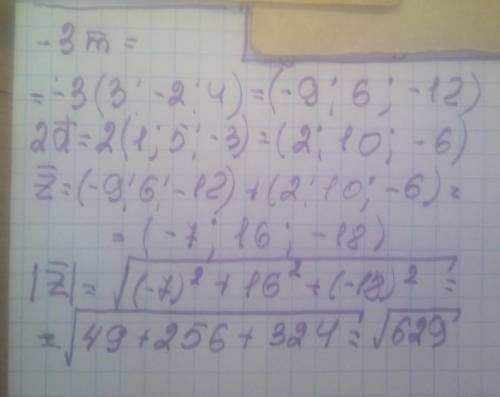 -3m̅ =
= -3(3; -2; 4) = (-9; 6; -12)
2a̅ = 2(1; 5; -3) = (2; 10; -6)
z̅ = (-9; 6; -12) + (2; 10; -6) =
= (-7; 16; -18)
|z̅| = √(-7)² + 16² + (-18)² =
= √49 + 256 + 324 = √629